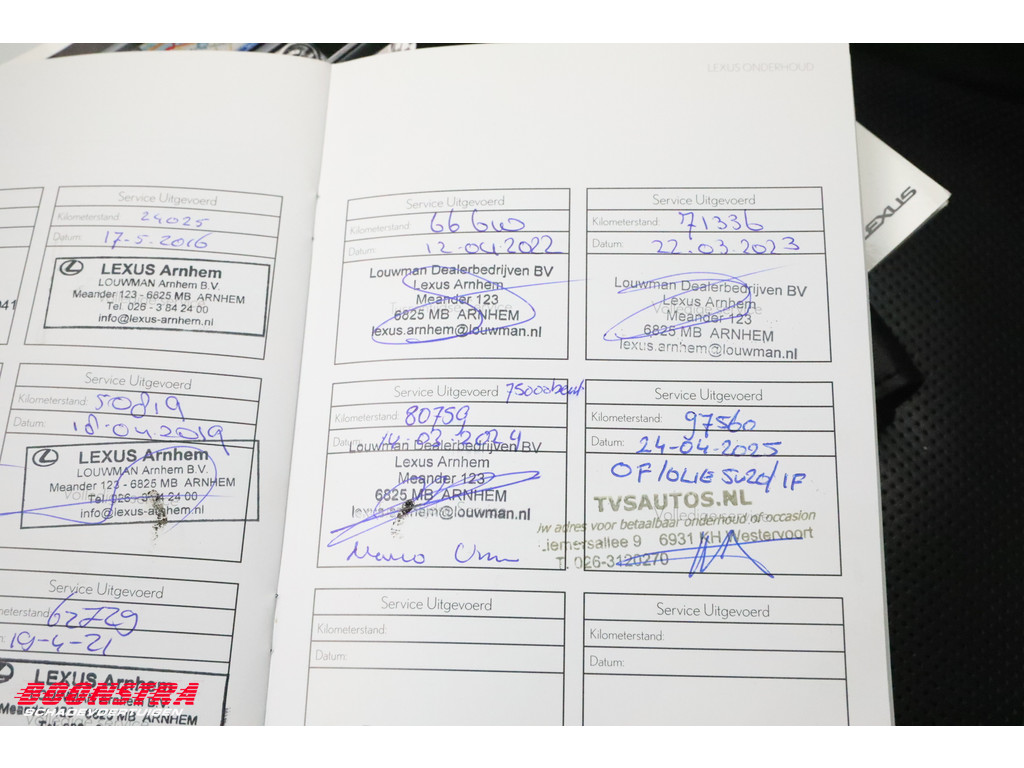 LEXUS ONDERHOUD
Service Uitgevoerd
Kilometerstand: 24025
Datum: 17-5-2016
LEXUS Arnhem
LOUWMAN Arnhem B.V.
Meander 123 - 6825 MB ARNHEM
Tel. 026 - 3 84 24 00
info@lexus-arnhem.nl
Service Uitgevoerd
Kilometerstand: 50819
Datum: 18-04-2019
LEXUS Arnhem
LOUWMAN Arnhem B.V.
Meander 123 - 6825 MB ARNHEM
Tel. 026 - 3 84 24 00
info@lexus-arnhem.nl
Service Uitgevoerd
62729
19-4-21
LEXUS Arnhem
6825 MB ARNHEM
Service Uitgevoerd
Kilometerstand: 66610
Datum: 12-04-2022
Louwman Dealerbedrijven BV
Lexus Arnhem
Meander 123
6825 MB ARNHEM
lexus.arnhem@louwman.nl
Service Uitgevoerd
Kilometerstand: 71336
Datum: 22-03-2023
Louwman Dealerbedrijven BV
Lexus Arnhem
Meander 123
6825 MB ARNHEM
lexus.arnhem@louwman.nl
Service Uitgevoerd 75000beurt
Kilometerstand: 80759
Datum: 14-02-2024
Louwman Dealerbedrijven BV
Lexus Arnhem
Meander 123
6825 MB ARNHEM
lexus.arnhem@louwman.nl
Service Uitgevoerd
Kilometerstand: 97560
Datum: 24-04-2025
OF/OLIE 5W30/IF
TVSAUTOS.NL
uw adres voor betaalbaar onderhoud of occasion
Liemersallee 9 6931 KH Westervoort
T. 026-3120270
Service Uitgevoerd
Kilometerstand:
Datum:
Service Uitgevoerd
Kilometerstand:
Datum:
LEXUS
BOONSTRA
SCHADEVOERTUIGEN